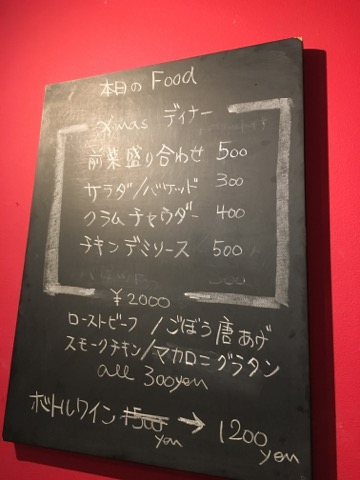 本日の Food
Xmas ディナー
前菜盛り合わせ 500
サラダ/バゲッド 300
クラムチャウダー 400
チキンデミソース 500
¥2000
ローストビーフ / ごぼう唐あげ
スモークチキン/マカロニグラタン
all 300yen
ボトルワイン 1500 yen → 1200 yen